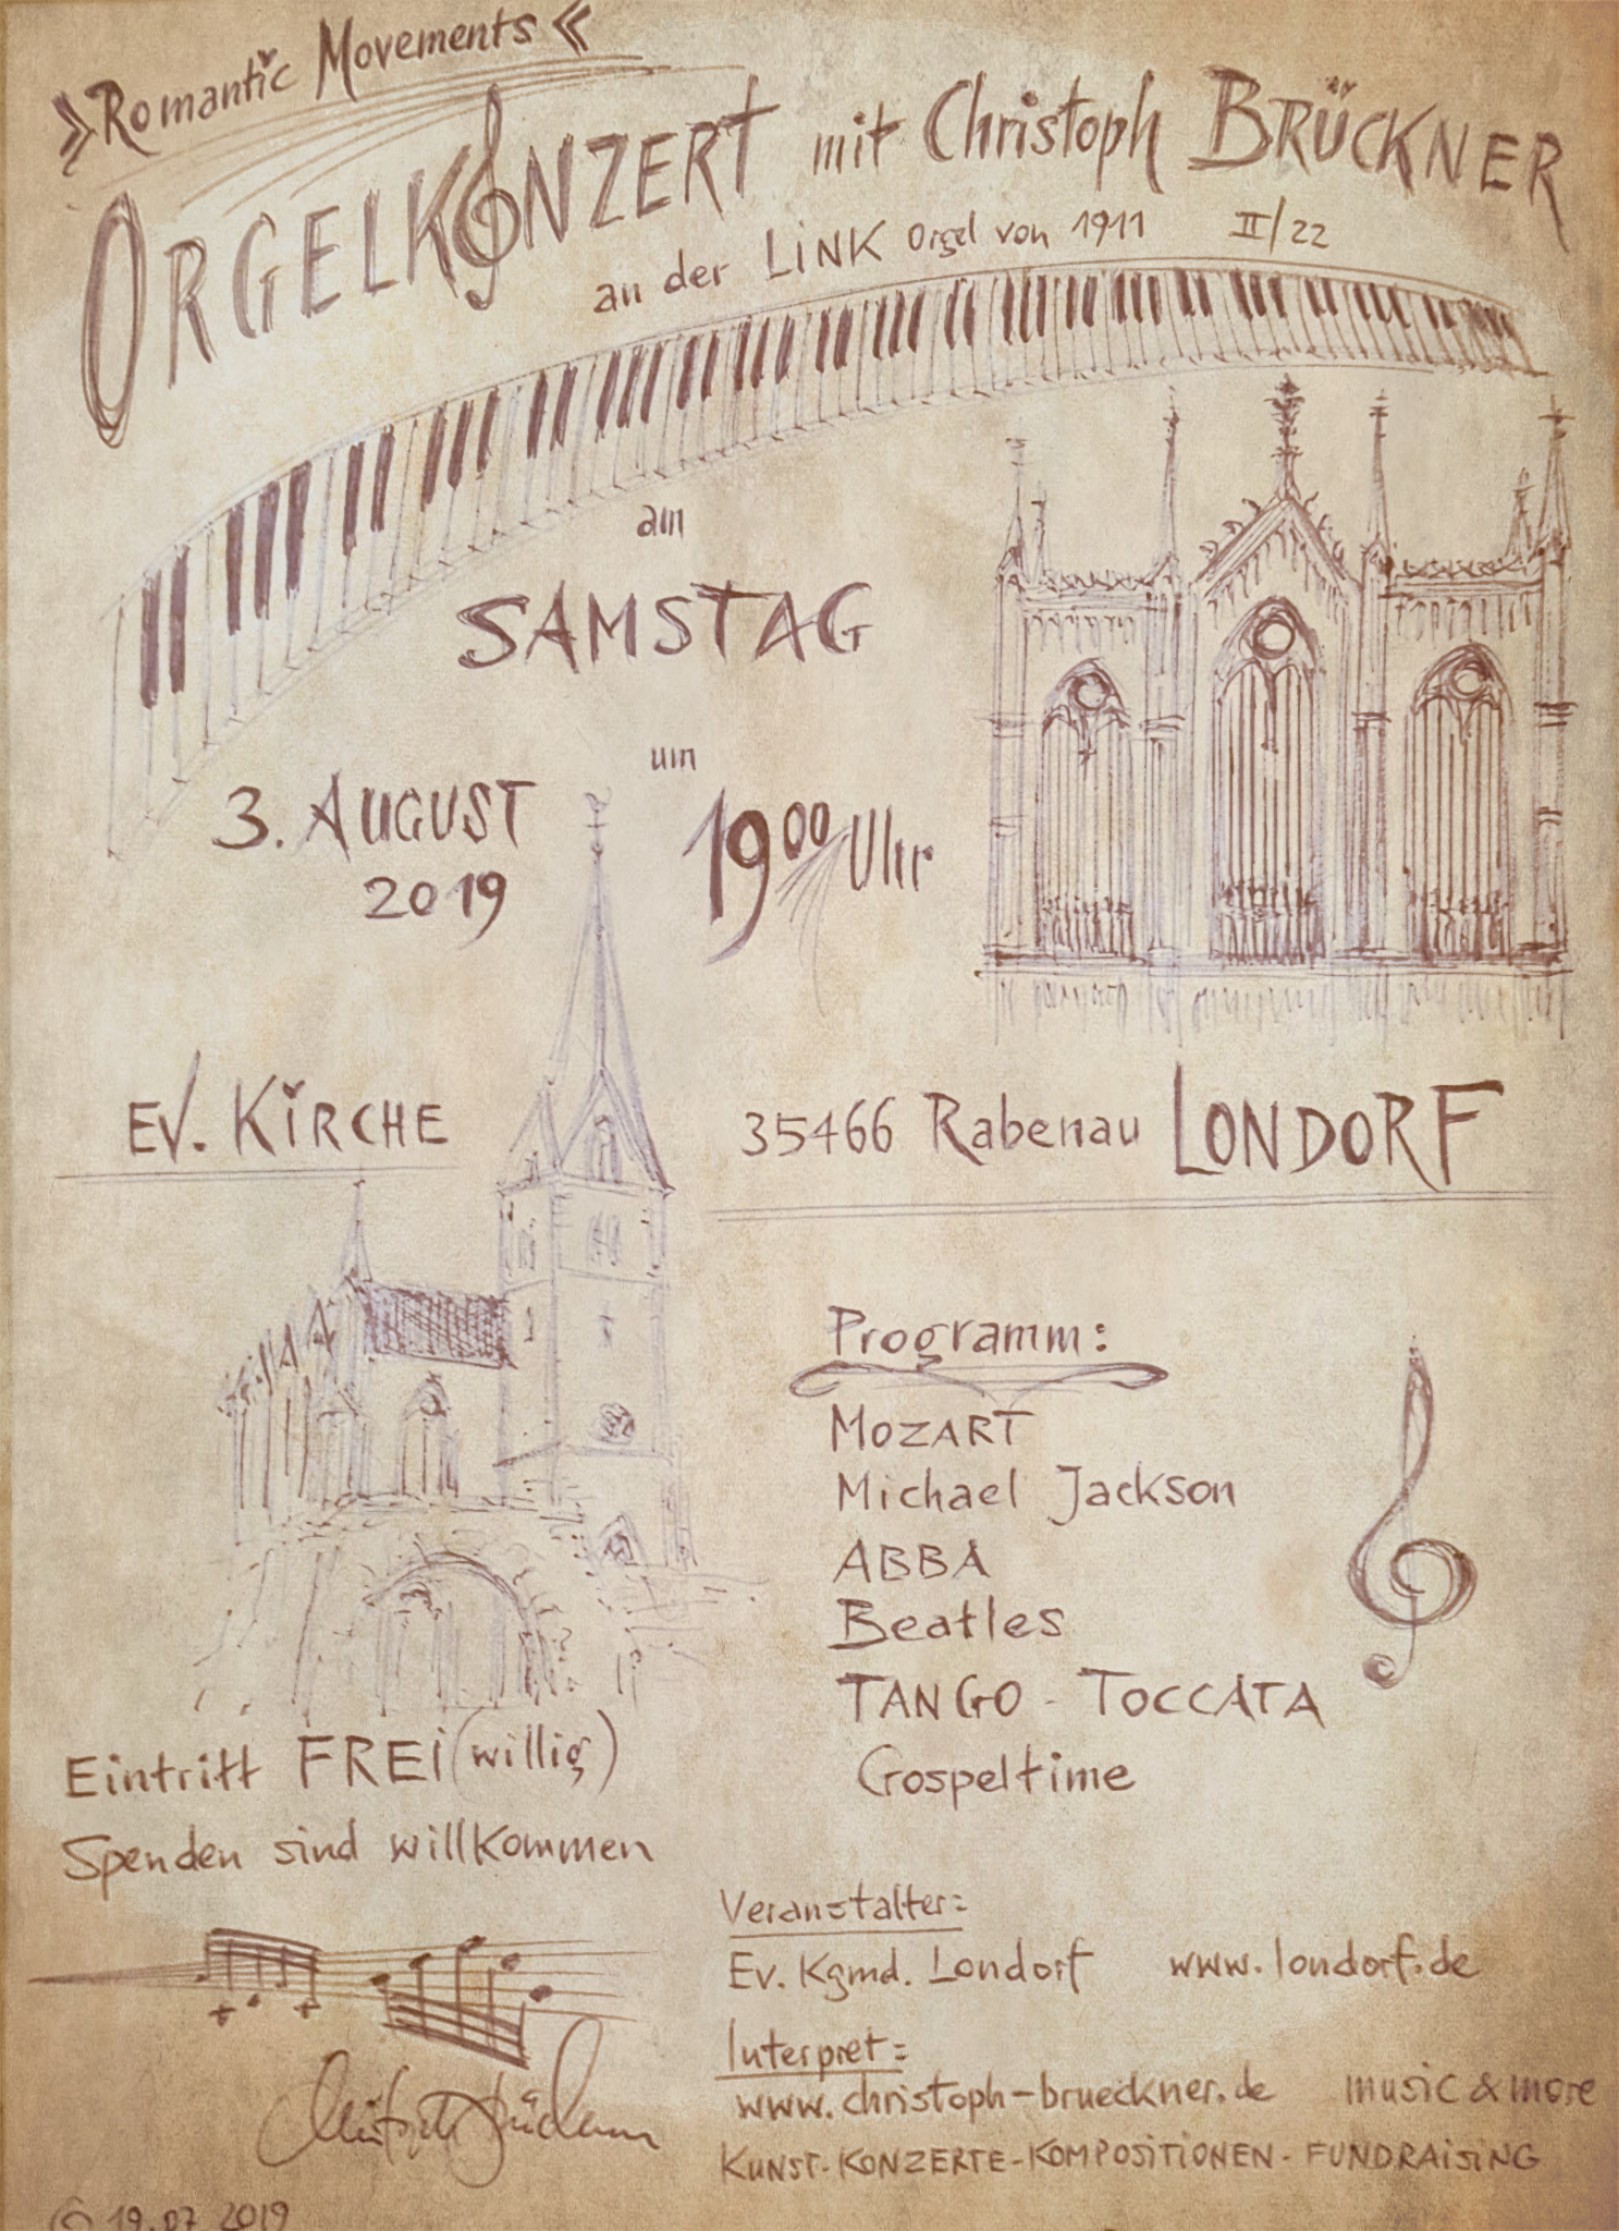 »Romantic Movements«
ORGELKONZERT mit Christoph BRÜCKNER
an der LINK Orgel von 1911 II/22
am
SAMSTAG
3. AUGUST
2019
um
19 00 Uhr
EV. KIRCHE
35466 Rabenau LONDORF
Programm:
MOZART
Michael Jackson
ABBA
Beatles
TANGO - TOCCATA
Gospeltime
Eintritt FREI (willig)
Spenden sind willkommen
Veranstalter:
Ev. Kgmd. Londorf www.londorf.de
Interpret:
www.christoph-brueckner.de music & more
KUNST-KONZERTE-KOMPOSITIONEN-FUNDRAISING
© 19.07.2019